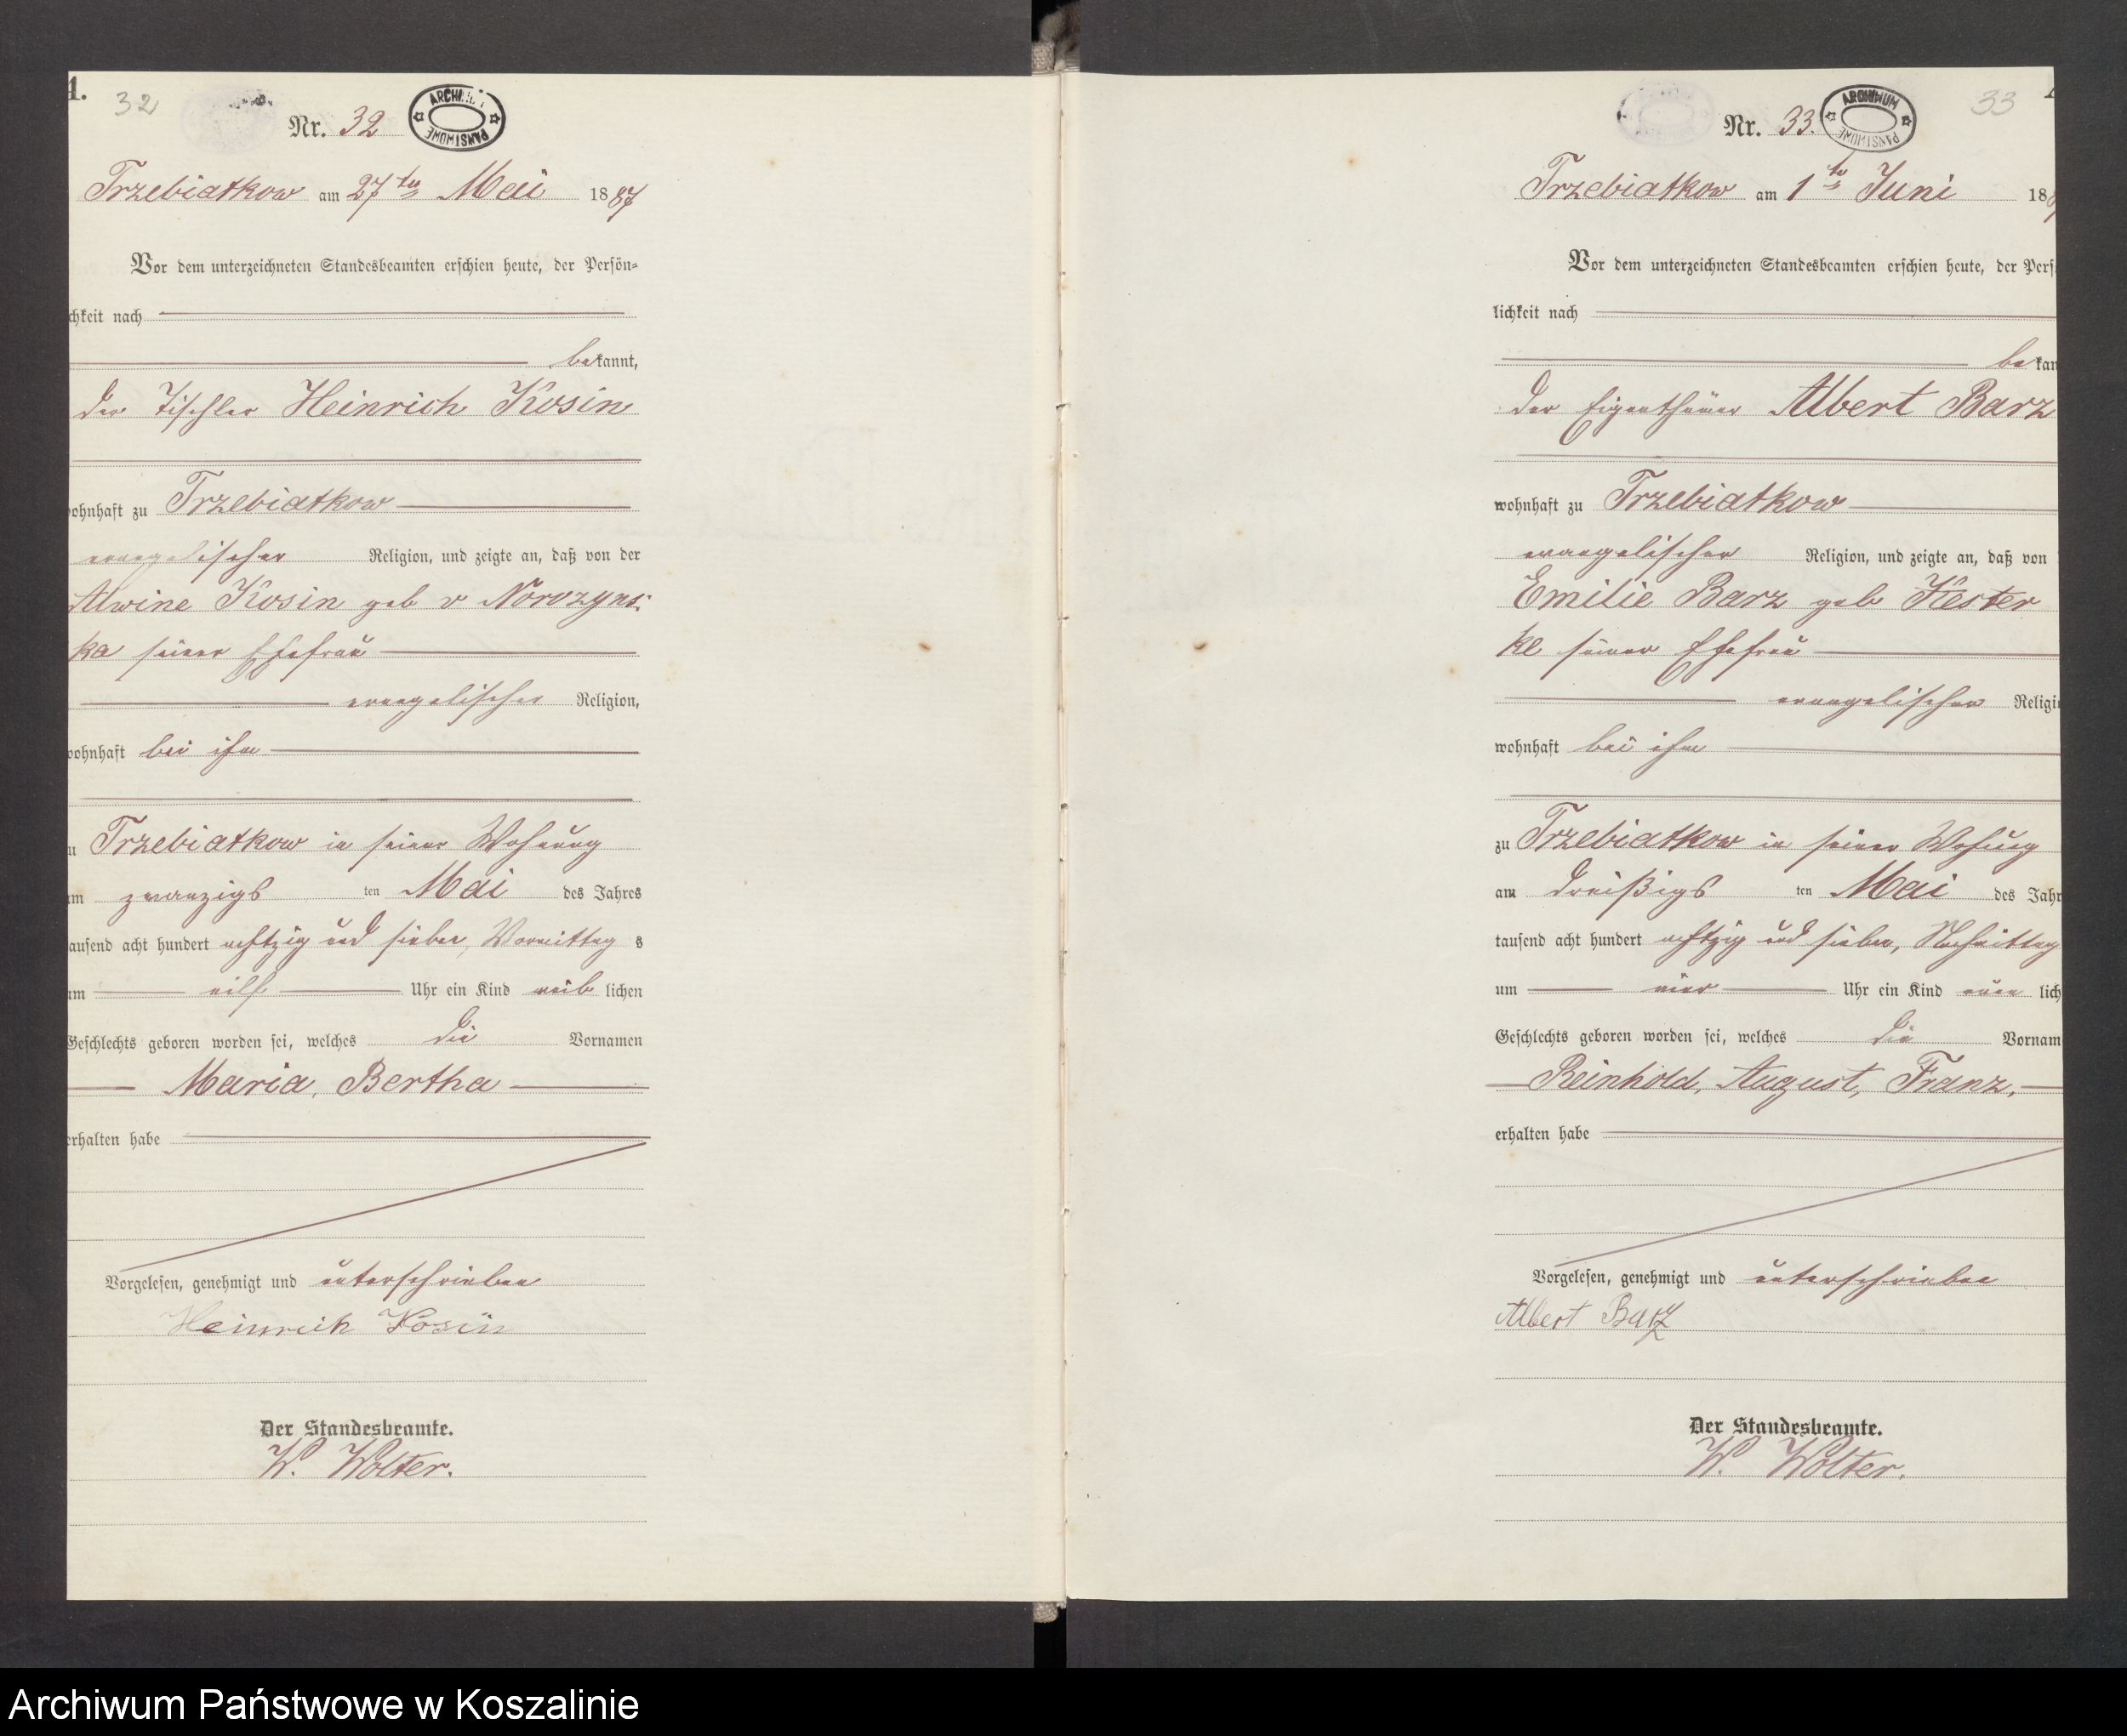 1.
32
Nr. 32
ARCHIWUM
PAŃSTWOWE
Trzebiatkow am 27ten Mai 1887
Vor dem unterzeichneten Standesbeamten erschien heute, der Persön-
chkeit nach
bekannt,
der Tischler Heinrich Kosin
ohnhaft zu Trzebiatkow
evangelischer Religion, und zeigte an, daß von der
Alwine Kosin geb v Norozyns-
ka seiner Ehefrau
evangelischer Religion,
ohnhaft bei ihm
u Trzebiatkow in seiner Wohnung
m zwanzigsten Mai des Jahres
ausend acht hundert achtzig und sieben, Vormittags
um eilf Uhr ein Kind weiblichen
Geschlechts geboren worden sei, welches die Vornamen
Maria, Bertha
erhalten habe
Vorgelesen, genehmigt und unterschrieben
Heinrich Kosin
Der Standesbeamte.
W. Wolter.
33
Nr. 33.
ARCHIWUM
PAŃSTWOWE
Trzebiatkow am 1ten Juni 188
Vor dem unterzeichneten Standesbeamten erschien heute, der Pers
lichkeit nach
bekan
der Eigenthümer Albert Barz
wohnhaft zu Trzebiatkow
evangelischer Religion, und zeigte an, daß von
Emilie Barz geb Kiester
ke seiner Ehefrau
evangelischer Religi
wohnhaft bei ihm
zu Trzebiatkow in seiner Wohnung
am dreißigsten Mai des Jahr
tausend acht hundert achtzig und sieben, Nachmittag
um vier Uhr ein Kind männlich
Geschlechts geboren worden sei, welches die Vornam
Reinhold, August, Franz,
erhalten habe
Vorgelesen, genehmigt und unterschrieben
Albert Barz
Der Standesbeamte.
W. Wolter.
Archiwum Państwowe w Koszalinie